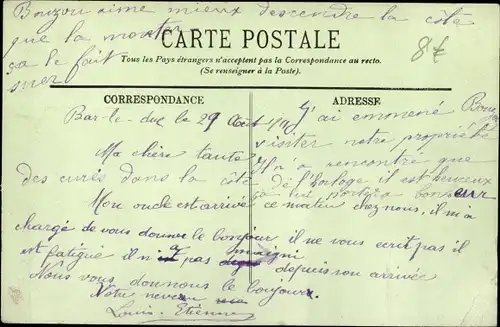 Bouzou aime mieux descendre la côte
que la monter
ça le fait
suer
8€
CARTE POSTALE
Tous les Pays étrangers n'acceptent pas la Correspondance au recto.
(Se renseigner à la Poste).
CORRESPONDANCE
ADRESSE
Bar-le-duc le 29 Août
Ma chère tante
des curés dans la côte
Mon oncle est arrivé ce matin chez nous, il m'a
chargé de vous donner le bonjour il ne vous écrit pas il
est fatigué il n'a pas depuis son arrivée
Nous vous donnons le bonjour
Votre neveu
Louis Etienne
J'ai emmené
visiter notre propriété
Il n'a rencontré que
de l'horloge il est heureux
ça lui portera bonheur